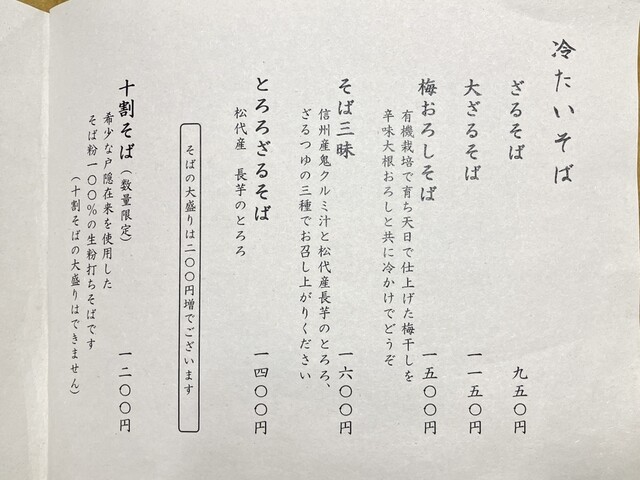 冷たいそば
ざるそば 九五〇円
大ざるそば 一一五〇円
梅おろしそば 一五〇〇円
有機栽培で育ち天日で仕上げた梅干しを
辛味大根おろしと共に冷かけでどうぞ
そば三昧 一六〇〇円
信州産鬼クルミ汁と松代産長芋のとろろ、
ざるつゆの三種でお召し上がりください
とろろざるそば 一四〇〇円
松代産 長芋のとろろ
そばの大盛りは二〇〇円増でございます
十割そば（数量限定） 一二〇〇円
希少な戸隠在来を使用した
そば粉一〇〇％の生粉打ちそばです
（十割そばの大盛りはできません）